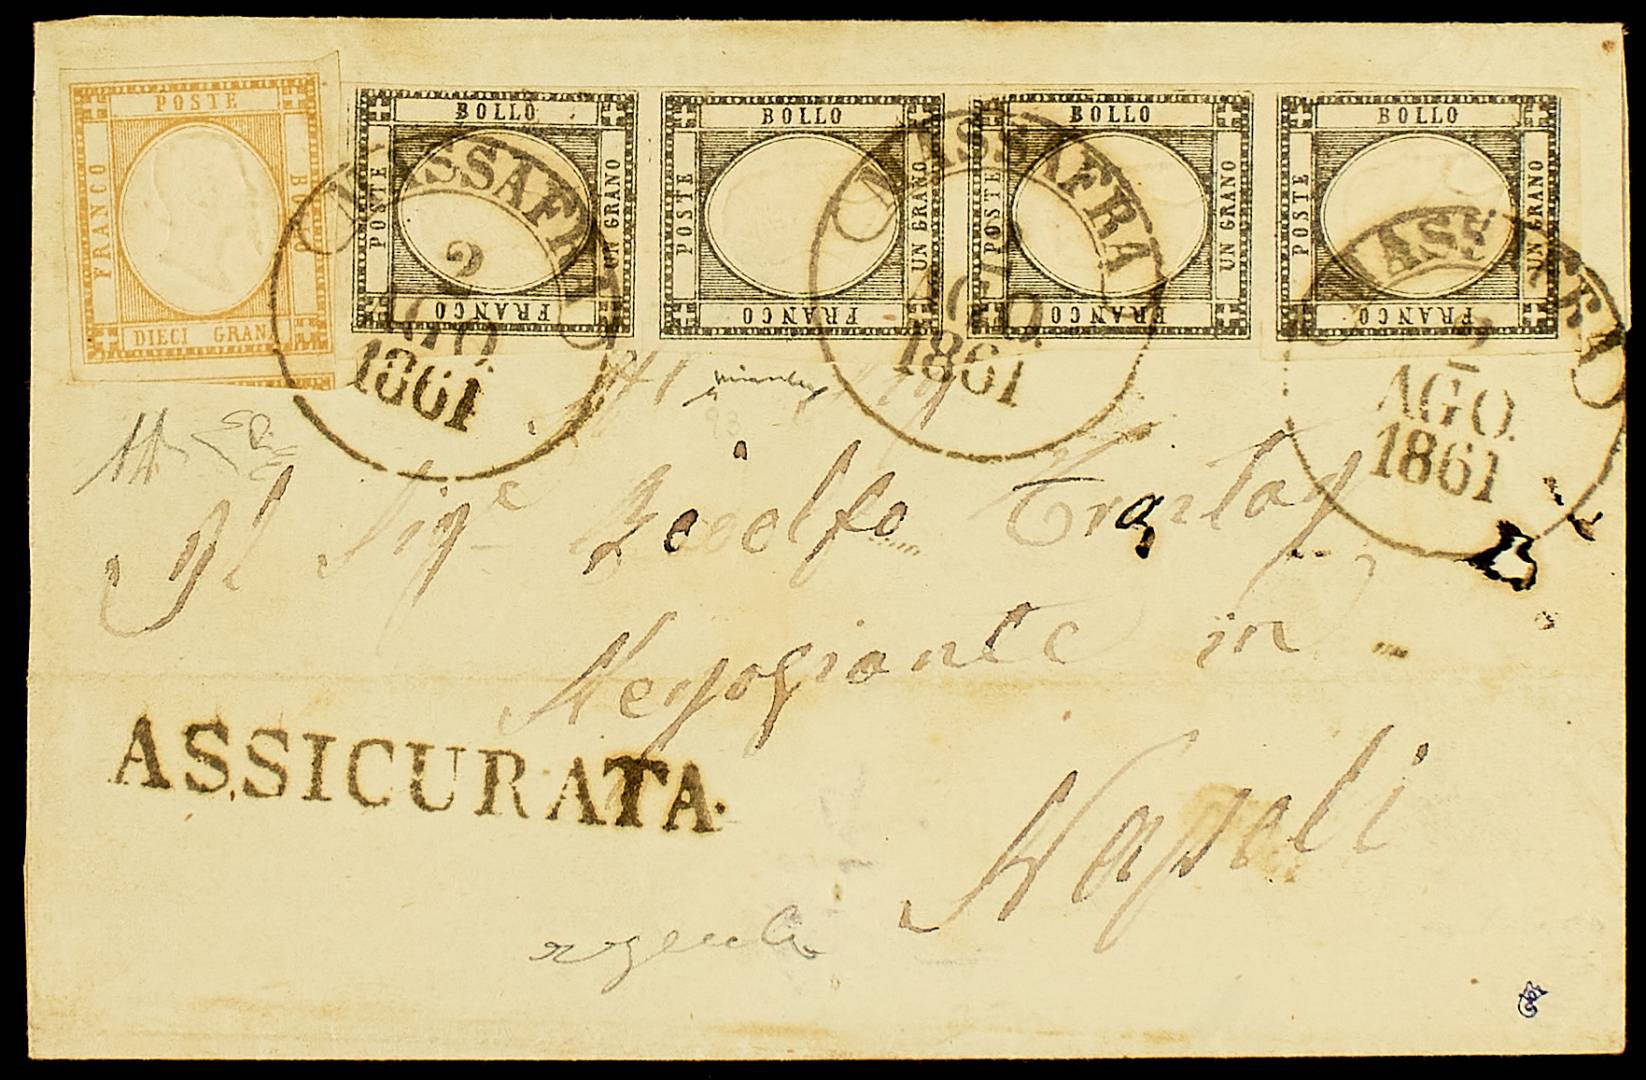 POSTE
FRANCO
BOLLO
DIECI GRAN
BOLLO
POSTE
UN GRANO
FRANCO
BOLLO
POSTE
UN GRANO
FRANCO
BOLLO
POSTE
UN GRANO
FRANCO
BOLLO
POSTE
UN GRANO
FRANCO
MASSAFRA
2
AGO.
1861
MASSAFRA
AGO.
1861
MASSAFRA
2
AGO.
1861
Al Sig.e Rodolfo
Negoziante in
Napoli
ASSICURATA